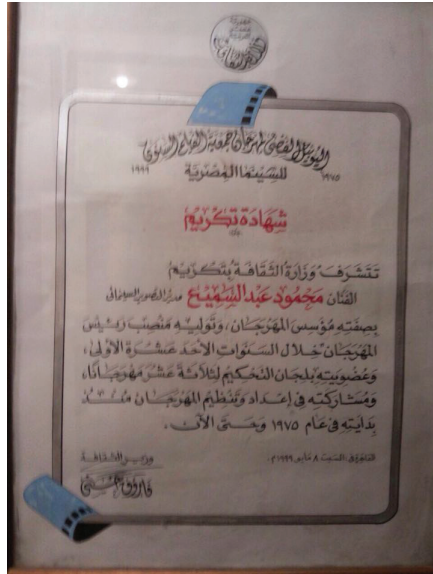 اليوبيل الفضي لمهرجان جمعية الفيلم السنوي
١٩٧٥ للسينما المصرية ١٩٩٩
شهادة تكريم
تتشرف وزارة الثقافة بتكريم
الفنان محمود عبد السميع مدير التصوير السينمائى
بصفته مؤسس المهرجان، وتوليه منصب رئيس
المهرجان خلال السنوات الأحد عشرة الأولى،
وعضويته بلجان التحكيم لثلاثة عشر مهرجانا،
ومشاركته فى إعداد وتنظيم المهرجان منذ
بدايته فى عام ١٩٧٥ وحتى الآن.
القاهرة فى السبت ٨ مايو ١٩٩٩م.
وزير الثقافة
فاروق حسنى